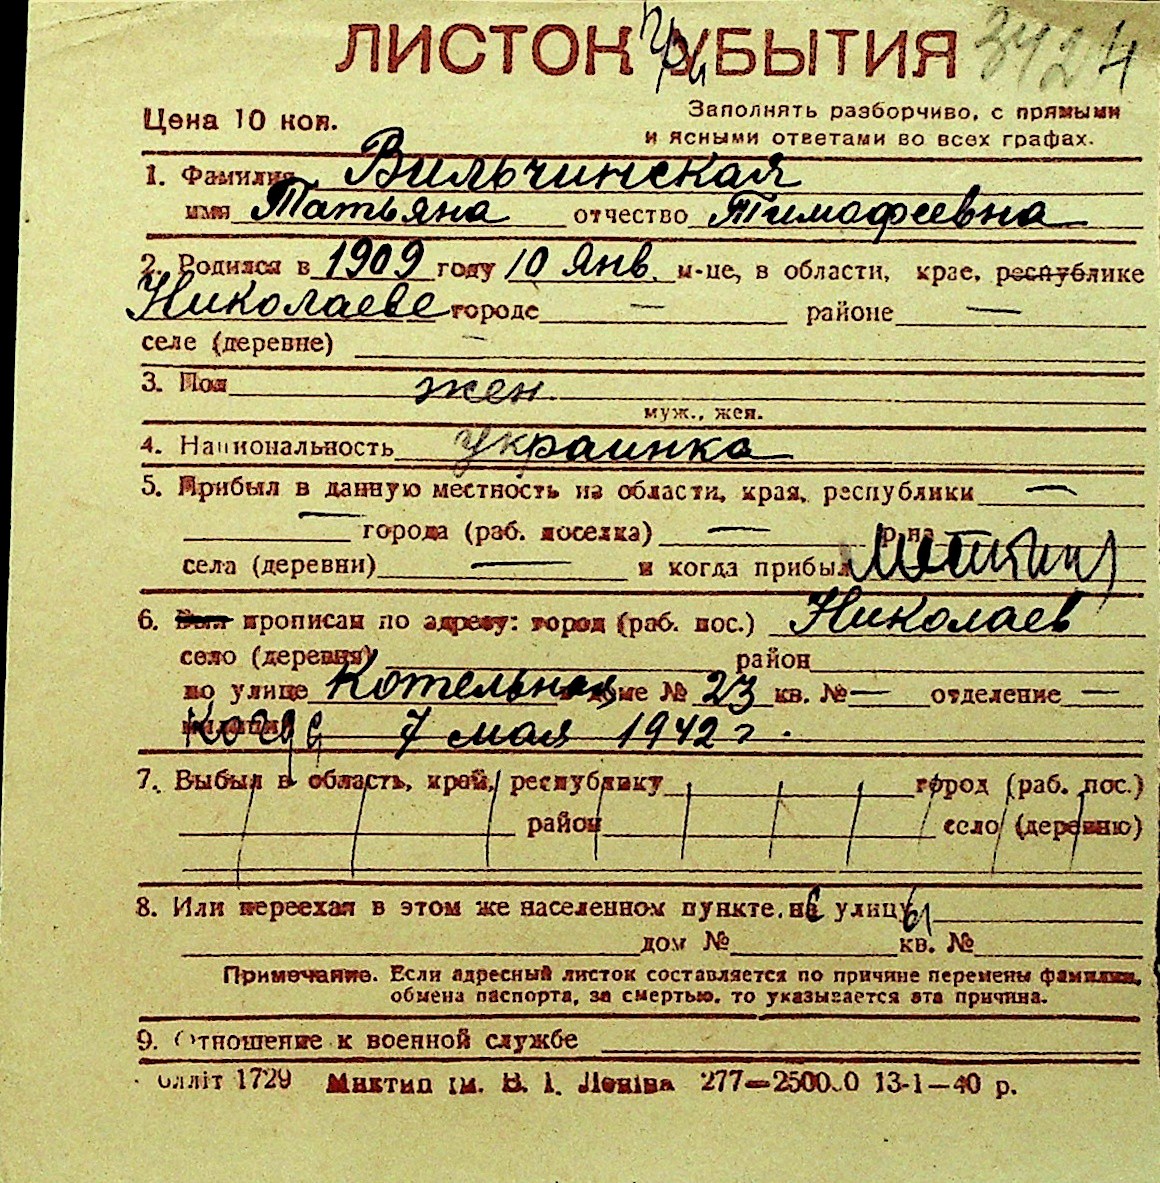 ЛИСТОК при УБЫТИЯ 3424
Цена 10 коп. Заполнять разборчиво, с прямыми
и ясными ответами во всех графах.
1. Фамилия Вильчинская
имя Татьяна отчество Тимофеевна
2. Родился в 1909 году 10 янв. м-це, в области, крае, республике
Николаеве городе — районе —
селе (деревне) —
3. Пол жен.
муж., жен.
4. Национальность украинка
5. Прибыл в данную местность из области, края, республики —
— города (раб. поселка) — р-на
села (деревни) — и когда прибыл
6. Был прописан по адресу: город (раб. пос.) Николаев
село (деревня) район
по улице Котельная доме № 23 кв. № — отделение —
милиции когда 7 мая 1942 г.
7. Выбыл в область, край, республику город (раб. пос.)
район село (деревню)
8. Или переехал в этом же населенном пункте, на с улицу ы
дом № кв. №
Примечание. Если адресный листок составляется по причине перемены фамилии,
обмена паспорта, за смертью, то указывается эта причина.
9. Отношение к военной службе
олліт 1729 Миктип ім. В. І. Леніна 277—2500.0 13-1—40 р.